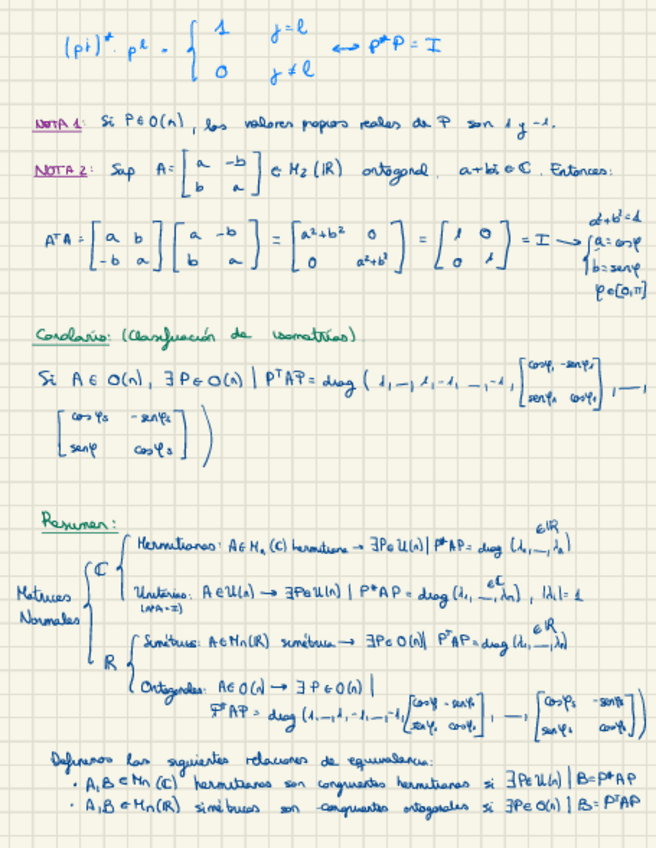 (pʲ)* · pˡ = { 1 j = l ↔ P*P = I
0 j ≠ l
NOTA 1: Si P ∈ O(n), los valores propios reales de P son 1 y -1.
NOTA 2: Sup A = [a -b; b a] ∈ M₂(ℝ) ortogonal. a+bi ∈ ℂ. Entonces:
AᵀA = [a b; -b a] [a -b; b a] = [a²+b² 0; 0 a²+b²] = [1 0; 0 1] = I → a²+b²=1 { a = cosφ b = senφ φ ∈ [0,π]
Corolario: (Clasificación de isometrías)
Si A ∈ O(n), ∃P ∈ O(n) | PᵀAP = diag (1, —, 1, -1, —, -1, [cosφ₁ -senφ₁; senφ₁ cosφ₁], —,
[cosφs -senφs; senφ cosφs])
Resumen:
Matrices Normales
ℂ
Hermitianas: A ∈ Mn(ℂ) hermitiana → ∃P ∈ U(n) | P*AP = diag (λ₁, —, λn) ∈ℝ
Unitarias: A ∈ U(n) → ∃P ∈ U(n) | P*AP = diag (λ₁, —, λn) ∈ℂ, |λi| = 1
(A*A = I)
ℝ
Simétrica: A ∈ Mn(ℝ) simétrica → ∃P ∈ O(n) | PᵀAP = diag (λ₁, —, λn) ∈ℝ
Ortogonales: A ∈ O(n) → ∃P ∈ O(n) |
PᵀAP = diag (1, —, 1, -1, —, -1, [cosφ₁ -senφ₁; senφ₁ cosφ₁], —, [cosφs -senφs; senφs cosφs])
Definimos las siguientes relaciones de equivalencia:
· A,B ∈ Mn(ℂ) hermitianas son congruentes hermitianas si ∃P∈U(n) | B = P*AP
· A,B ∈ Mn(ℝ) simétricas son congruentes ortogonales si ∃P∈O(n) | B = PᵀAP